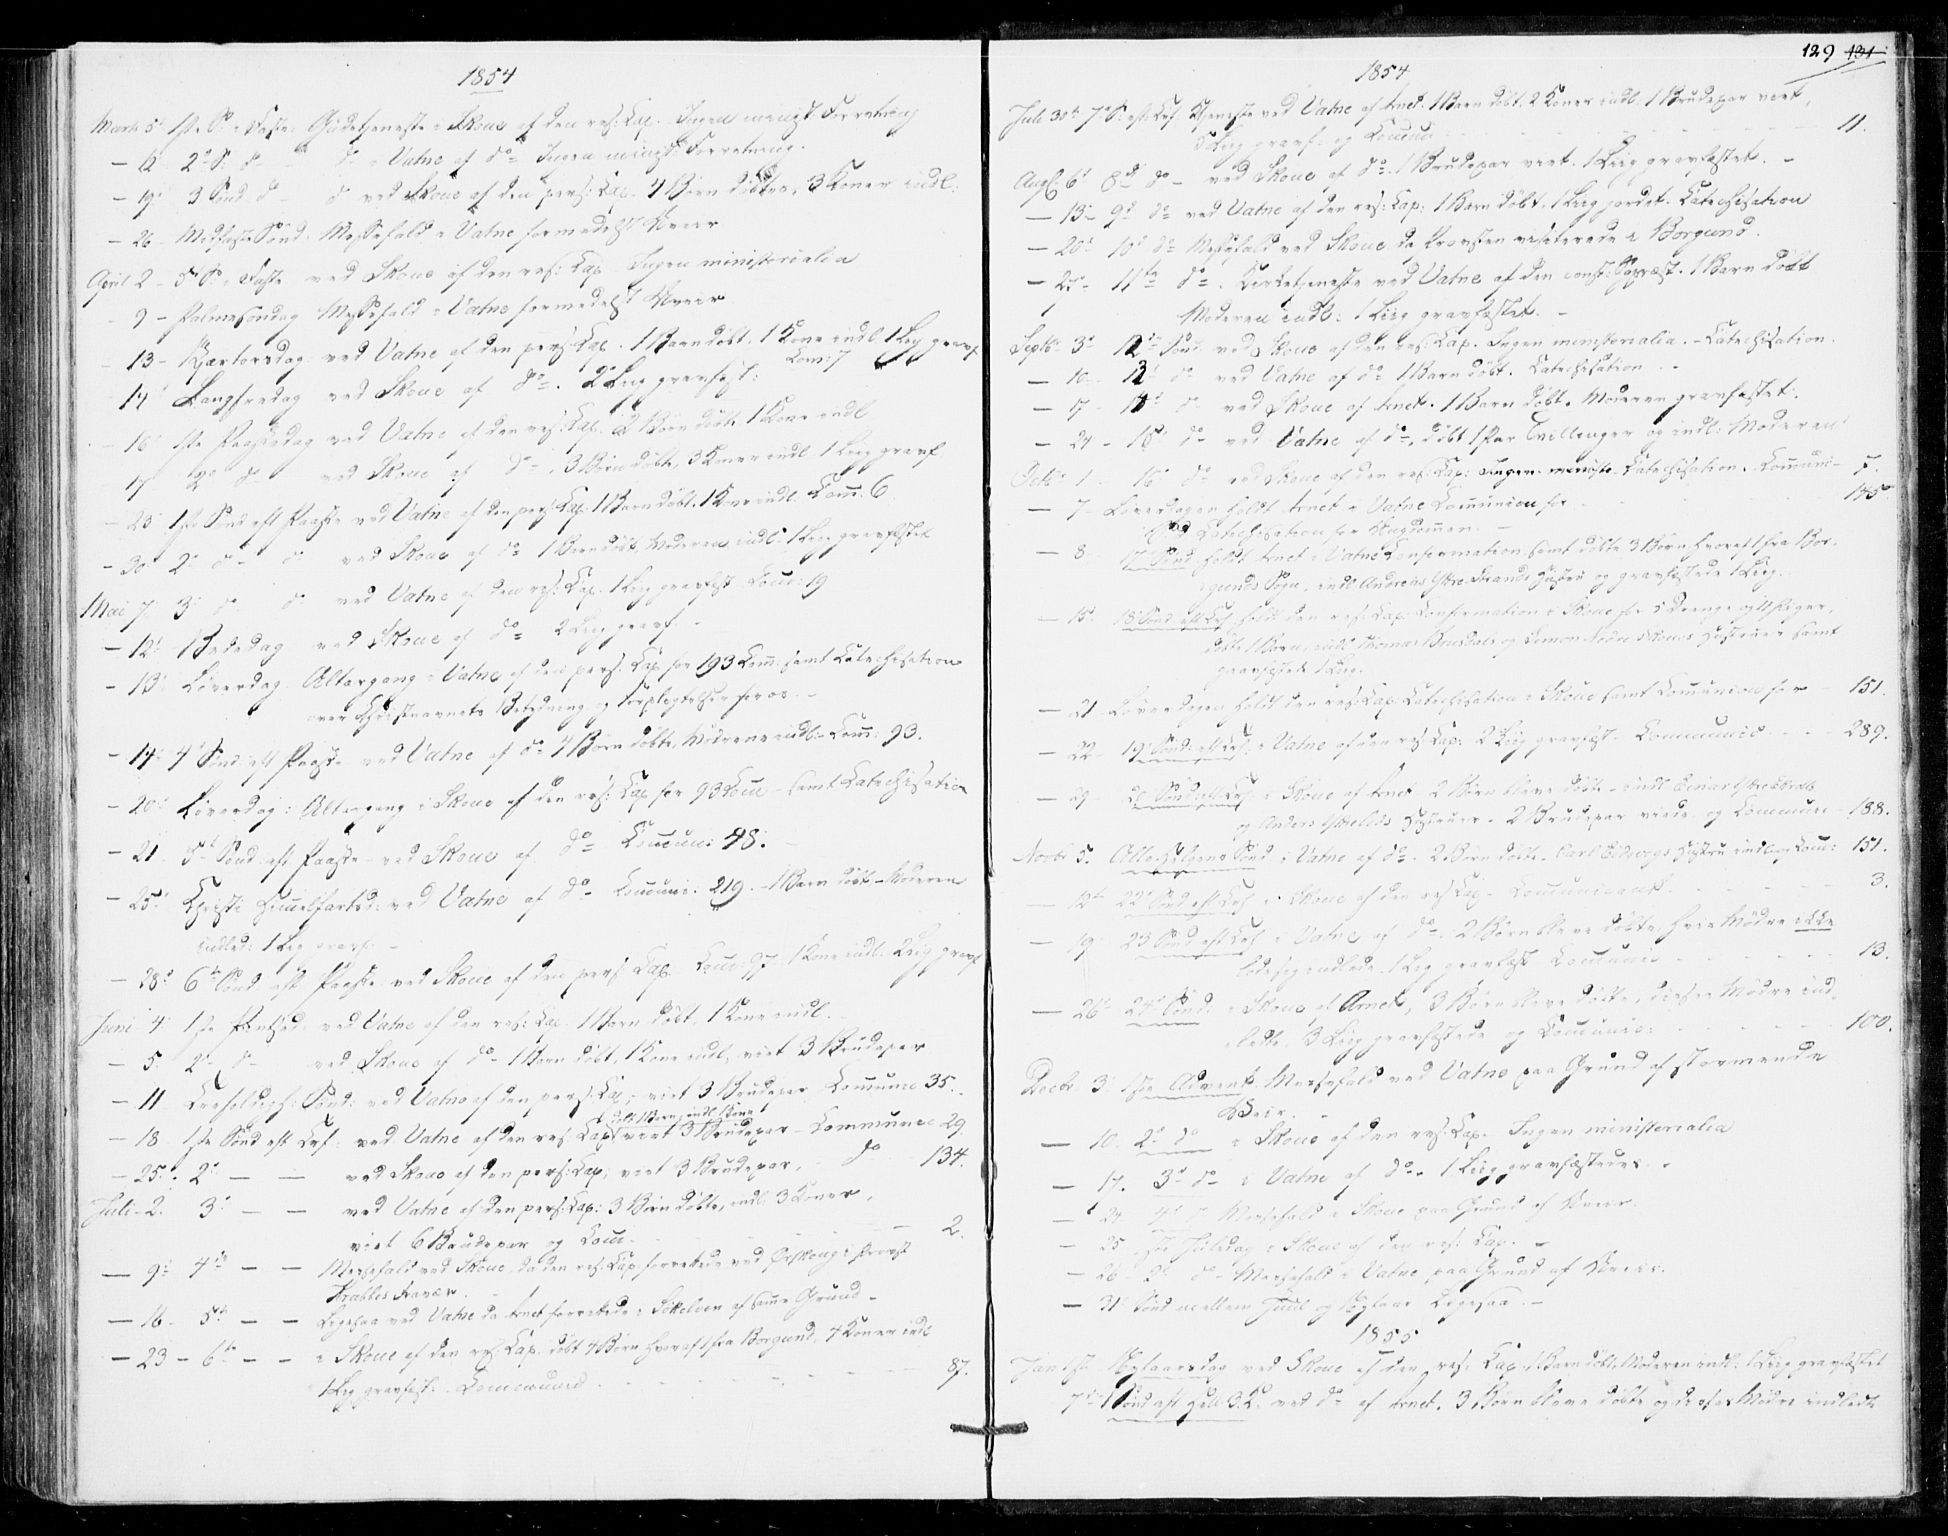 1854
Marts 5 1ste S. i Faste. Gudstjeneste i Skoue af den res: Cap. Ingen minist. Forretning
— 12 2d S. do — do i Vatne af do Ingen minist: Forretning.
— 19 3 Sønd. do — do ved Skoue af den pers: Cap. 4 Børn døbte, 3 Koner indl:
— 26 Midfaste Sønd. Messefald i Vatne formedelst Uveir
April 2 – 5 S. i Faste ved Skoue af den res: Cap. Ingen ministerialia
– 9 – Palmesøndag Messefald i Vatne formedelst Uveir.
– 13 – Skjærtorsdag ved Vatne af den pers: Cap. 1 Barn døbt, 1 Kone indl. 1 Lig gravf.
Com: 7
14 Langfredag ved Skoue af do. 2 Liig gravfæst:
– 16 1ste Paaskedag ved Vatne af den res: Cap. 2 Børn døbt 1 Kone indl
17 2d do ved Skoue af do, 3 Børn døbte, 3 Koner indl. 1 Liig gravf.
– 23 1ste Sønd eft Paaske ved Vatne af den pers: Cap. 1 Barn døbt. 1 Kone indl. Com. 6
– 30 2d do – do ved Skoue af do 1 Barn døbt, Moderen indl: 1 Liig gravfæstet
Mai 7. 3 do – do ved Vatne af den res: Cap. 1 Liig gravfæst Com: 19
– 12 Bededag ved Skoue af do 2 Liig gravf. –
– 13 Løverdag. Altergang i Vatne af den pers: Cap for 193 Com: samt Catechisation
over Christnavnets Betydning og Forpligtelser for os. –
– 14 4 Sønd eft Paaske ved Vatne af do 4 Børn døbte, Mødrene indl. – Com: 93.
– 20 Løverdag: Altergang i Skoue af den res: Cap for 93 Com – samt Catechisation
– 21 5te Sønd. eft Paaske – ved Skoue af do Commun: 48.
– 25 Christi Himmelfartsd: ved Vatne af do Communi. 219. – 1 Barn døbt – Moderen
indled: 1 Lig gravf. –
– 28 6te Sønd eft Paaske ved Skoue af den pers: Cap: Com: 97 1 Kone indl. 2 Liig gravf
Juni 4 1ste Pintsed: ved Vatne af den res: Cap. 1 Barn døbt, 1 Kone indl. –
– 5. 2d do ved Skoue af do 1 Barn døbt, 1 Kone indl, viet 3 Brudepar
– 11 Trefoldigh: Sønd: ved Vatne af den pers: Cap; viet 3 Brudepar Commune 35.
døbt 1 Barn, indl 1 Kone
– 18 1ste Sønd eft Tref: ved Vatne af den res. Cap. viet 3 Brudepar – Communec 29
– 25. 2d — — ved Skoue af den pers: Cap; viet 3 Brudepar, do 134.
Juli – 2. 3 — — ved Vatne af den pers: Cap: 3 Børn døbte, indl 3 Koner,
viet 6 Brudepar og Com. 2.
— 9 4de — — Messefald ved Skoue, da den res: Cap. forrettede ved Ørskoug i Provst
Krabbes Fravær.
— 16 – 5te — — Ligesaa ved Vatne da Anet forrettede i Søkelven af samme Grund –
— 23 – 6te — — i Skoue af den res: Cap. døbt 4 Børn hvoraf 1 fra Borgund, 4 Koner indl
1 Lig gravfæst: Commund 87.
129 131
1854
Juli 30te 7d S. eft. Tref. Tjeneste ved Vatne af Anet. 1 Barn døbt. 2 Koner indl. 1 Brudepar viet,
5 Liig gravf. og Commun 11.
Augst 6d 8d do – ved Skoue af do. 1 Brudepar viet. 1 Liig gravfæstet. –
— 13 – 9d do ved Vatne af den res: Cap: 1 Barn døbt. 1 Liig jordet. Catechisation
— 20 10d do Messefald ved Skoue da Provsten visiterede i Borgund.
— 27 – 11te do. Gudstjeneste ved Vatne af den const: Sogpræst. 1 Barn døbt
Moderen indl: 1 Liig gravfæstet. –
Septbr 3 12te Sønd ved Skoue af den res: Cap. Ingen ministerialia. – Catechisation.
— 10 – 13 do ved Vatne af do 1 Barn døbt. Catechisation. –
— 17 – 14 do ved Skoue af Anet. 1 Barn døbt. Moderen gravfæstet.
— 24 – 15 do ved Vatne af do, døbt 1 Par Tvillinger og indl: Moderen
Octbr 1 – 16 do ved Skoue af den res: Cap: Ingen ministr. Catechisation. Communi– 7.
— 7 – Løverdagen holdt Anet i Vatne Communion for 145
Catechisation for Ungdommen. –
— 8 – 17 Sønd holdt Anet i Vatne Confirmation samt døbte 3 Børn hvoraf 1 fra Bor-
gunds Sogn, indl Andreas Ytre Strands Hustru og gravfæstede 1 Liig.
— 15. 18 Sønd eft Tref. holdt den res: Cap. Confirmation i Skoue for 5 Drenge og 11 Piger,
døbte 1 Barn, indl. Thomas Brusdals og Simon Nedre Skoues Hustruer samt
gravfæstede 1 Liig.
— 21 – Løverdagen holdt den res: Cap. Catechisation i Skoue samt Communion for – 151.
— 22 – 19 Sønd: eft Tref: i Vatne af den res Cap: 2 Liig gravfæst – Communice – 289.
— 29 – 20 Sønd eft Tref i Skoue af Anet 2 Børn bleve døbte – indl Einar
og Anders Hustruer. 2 Brudepar viede og Commun – 188.
Novbr 5. Alle Helgens Sønd i Vatne af do. 2 Børn døbte. Carl Hustru indl. og Com: 151.
— 12te 22d Sønd eft Tref i Skoue af den res Cap – Communicant. 3.
— 19 23 Sønd eft Tref i Vatne af do. 2 Børn bleve døbte hvis Mødre ikke
lode sig indlede. 1 Liig gravfæst Communi 13.
— 26 24d Sønd: i Skoue af Anet, 3 Børn bleve døbte, disses Mødre ind-
ledte, 3 Liig gravfæstede og Communic: 100.
Decbr 3 1ste Advent Messefald ved Vatne paa Grund af stormende
Veir. –
— 10. 2d do i Skoue af den res: Cap. Ingen ministerialia
— 17. 3d do i Vatne af do. 1 Liig gravfæstedes. –
— 24 4d do Messefald i Skoue paa Grund af Uveir.
— 25 1ste Juledag i Skoue af den res: Cap. –
— 26 – 2d do – Messefald i Vatne paa Grund af Uveir.
— 31 Sønd mellem Juul og Nytaar Ligesaa. –
1855
Jan 1ste Nytaarsdag ved Skoue af den res: Cap. 1 Barn døbt, Moderen indl: 1 Liig gravfæstet
7de 1 Sønd eft Hell. 3. K. ved do af Anet. 3 Børn bleve døbte og deres Mødre indledte